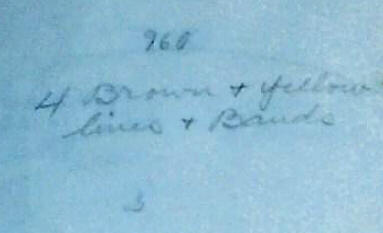 960
4 Brown + Yellow
lines + Bands
3